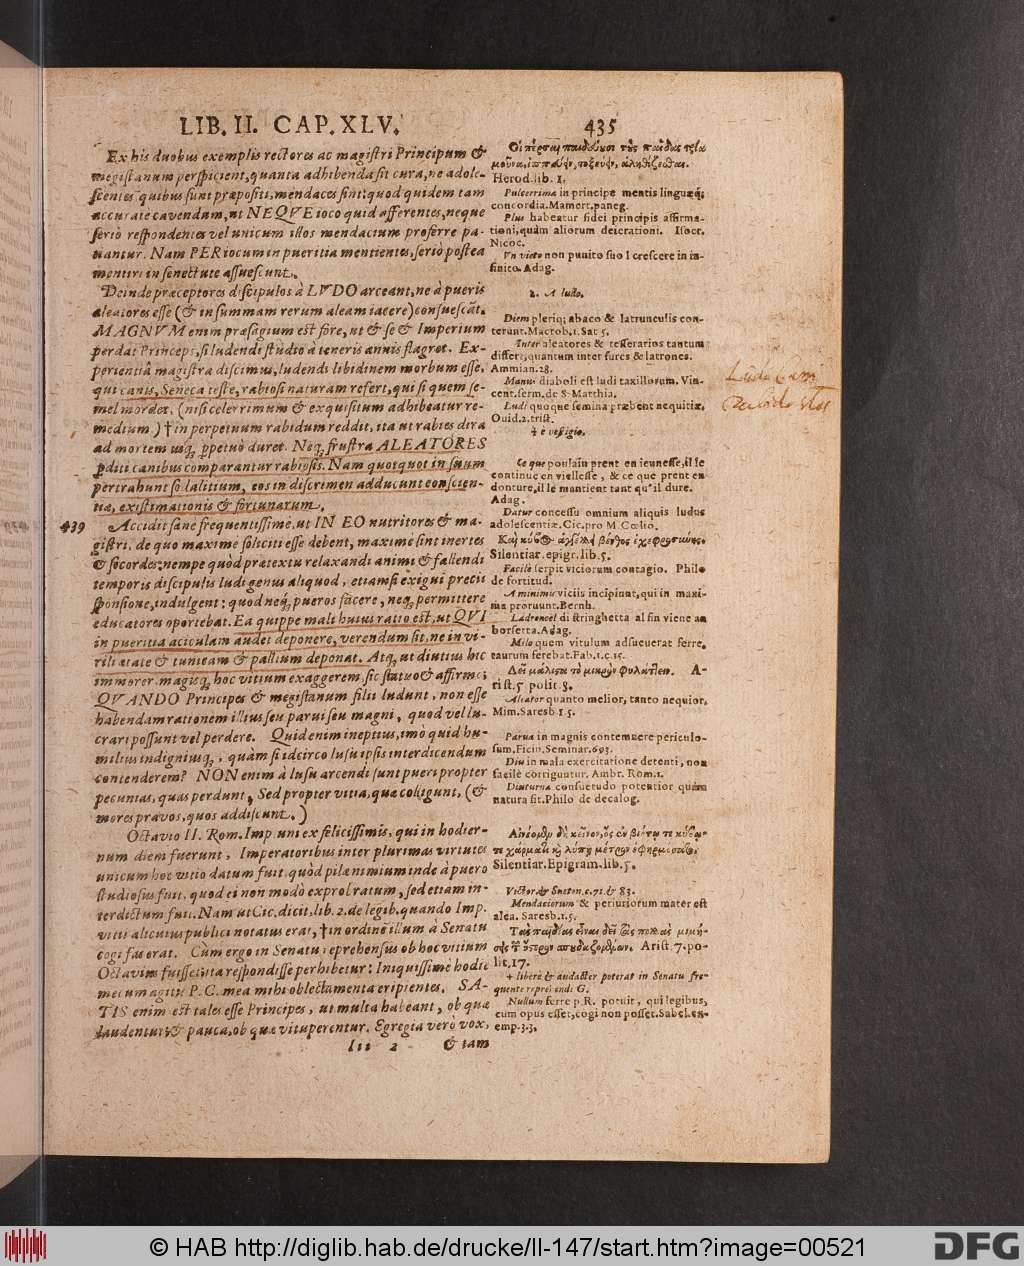 LIB. II. CAP. XLV.
435
Ex his duobus exemplis rectores ac magistri Principum &
megistanum perspicient, quanta adhibenda sit cura, ne adole-
scentes quibus sunt præpositi, mendaces sint: quod quidem tam
accurate cavendum, ut NEQVE ioco quid asserentes, neque
seriò respondentes vel unicum illos mendacium proferre pa-
tiantur. Nam PER iocum in pueritia mentientes, seriò postea
mentiri in senectute assuescunt.
Deinde præceptores discipulos à LVDO arceant, ne à pueris
aleatores esse (& in summam rerum aleam iacere) consuescāt.
MAGNVM enim præsagium est fore, ut & se & Imperium
perdat Princeps, si ludendi studio à teneris annis flagret. Ex-
perientiâ magistra discimus, ludendi libidinem morbum esse,
qui canis, Seneca teste, rabiosi naturam refert, qui si quem se-
mel mordet, (nisi celerrimum & exquisitum adhibeatur re-
medium) † in perpetuum rabidum reddit, ita ut rabies dira
ad mortem usq; perpetuò duret. Neq; frustra ALEATORES
perditi canibus comparantur rabiosis. Nam quotquot in suum
pertrahunt sodalitium, eos in discrimen adducunt conscien-
tiæ, existimationis & fortunarum.
439
Accidit sane frequentissime, ut IN EO nutritores & ma-
gistri, de quo maxime soliciti esse debent, maxime sint inertes
& socordes: nempe quòd prætextu relaxandi animi & fallendi
temporis discipulis ludi genus aliquod, etiamsi exigui precii
sponsione, indulgent: quod neq; pueros facere, neq; permittere
educatores oportebat. Ea quippe mali huius ratio est, ut QVI
in pueritia aciculam audet deponere, verendum sit, ne in vi-
rili ætate & tunicam & pallium deponat. Atq; ut diutius hic
immorer, magisq; hoc vitium exaggerem, sic statuo & affirmo;
QVANDO Principes & megistanum filii ludunt, non esse
habendam rationem illius seu parui seu magni, quod vel lu-
crari possunt vel perdere. Quid enim ineptius, imò quid hu-
milius indigniusq;, quàm si idcirco lusu ipsis interdicendum
contenderem? NON enim à lusu arcendi sunt pueri propter
pecunias, quas perdunt, Sed propter vitia, quæ colligunt, (&
mores pravos, quos addiscunt.)
Octavio II. Rom. Imp. uni ex felicissimis, qui in hodier-
num diem fuerunt, Imperatoribus inter plurimas virtutes
unicum hoc vitio datum fuit, quòd pilæ nimium inde à puero
studiosus fuit, quod ei non modò exprobratum, sed etiam in-
terdictum fuit. Nam ut Cic. dicit, lib. 2. de legib. quando Imp.
vitii alicuius publici notatus erat, † in ordinē illum à Senatu
cogi fas erat. Cùm ergo in Senatu reprehensus ob hoc vitium
Octavius fuisset, ita respondisse perhibetur: Iniquissimè hodie
mecum agitis P.C. mea mihi oblectamenta eripientes. SA-
TIS enim est tales esse Principes, ut multa habeant, ob quæ
laudentur; & pauca, ob quæ vituperentur. Egregia verò vox,
Iii 2
& tam
Herod. lib. 1.
Pulcerrima in principe mentis linguæq;
concordia. Mamert. paneg.
Plus habeatur fidei principis affirma-
tioni, quàm aliorum deierationi. Isocr.
Nicoc.
Vn vicio non punito suol crescere in in-
finito. Adag.
2. A ludo.
Diem pleriq; abaco & latrunculis con-
terunt. Macrob. 1. Sat 5.
Inter aleatores & tesserarios tantum
differt, quantum inter fures & latrones.
Ammian. 28.
Manus diaboli est ludi taxillorum. Vin-
cent. ferm. de S. Matthia.
Ludi quoque semina præbent nequitiæ,
Ovid. 2. trist.
Ce que poulain prent en ieunesse, il le
continue en viellesse, & ce que prent en
donture, il le mantient tant qu'il dure.
Adag.
Datur concessu omnium aliquis ludus
adolescentiæ. Cic. pro M. Cœlio.
Silentiar. epigr. lib. 5.
Facilè serpit viciorum contagio. Philo
de fortitud.
A minimis viciis incipiunt, qui in maxi-
ma proruunt. Bernh.
Ladroncel di stringhetta al fin viene an
borsetta. Adag.
Milo quem vitulum adsueuerat ferre,
taurum ferebat. Fab. 1. c. 15.
Δεῖ μάλιστα τὸ μικρὸν φυλάττειν. A-
rist. 5 polit. 8.
Aleator quanto melior, tanto nequior.
Mim. Saresb. 1. 5.
Parua in magnis contemnere periculo-
sum. Ficin. Seminar. 693.
Diu in mala exercitatione detenti, non
facilè corriguntur. Ambr. Rom. 1.
Diuturna consuetudo potentior quàm
natura fit. Philo de decalog.
Silentiar. Epigram. lib. 5.
Victor & Sueton. c. 71. & 83.
Mendaciorum & periuriorum mater est
alea. Saresb. 1. 5.
Arist. 7. po-
lit. 17.
+ liberè & audacter poterat in Senatu fre-
quente reprehendi G.
Nullum ferre p.R. potuit, qui legibus,
cum opus esset, cogi non posset. Sabel. ex-
emp. 3. 3.
© HAB http://diglib.hab.de/drucke/li-147/start.htm?image=00521
DFG